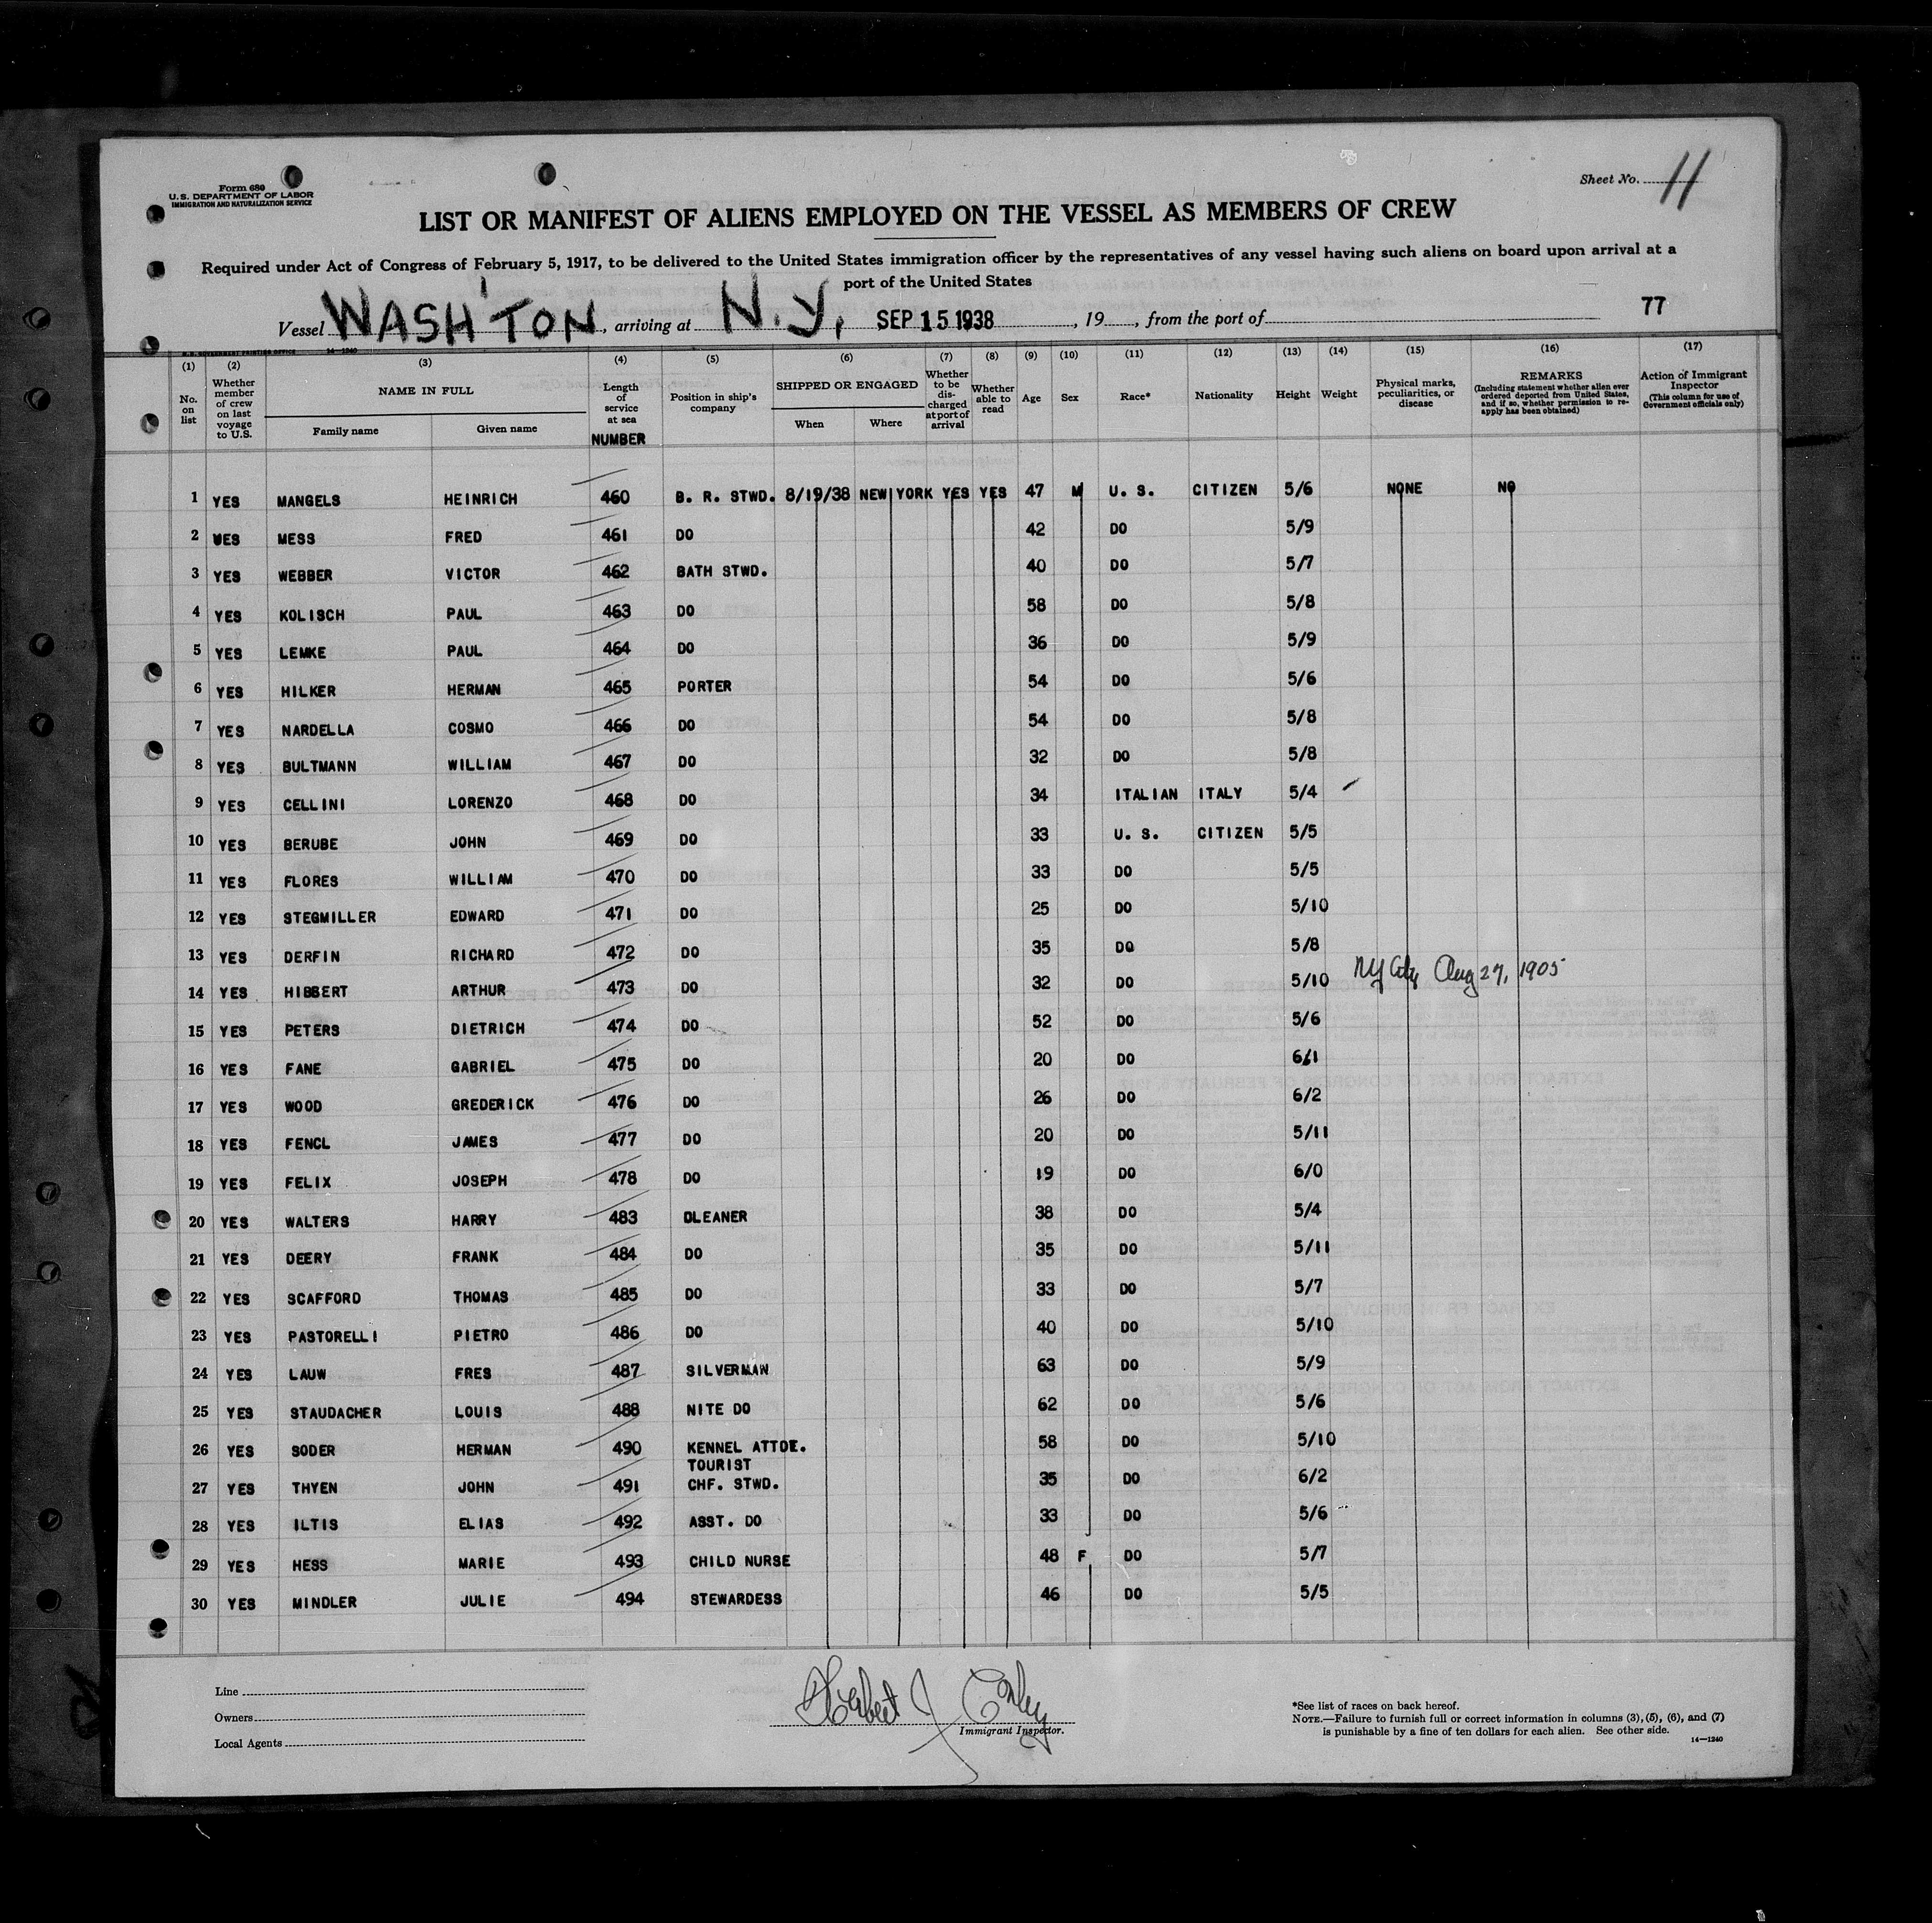 Form 680
U.S. DEPARTMENT OF LABOR
IMMIGRATION AND NATURALIZATION SERVICE
Sheet No. 11
LIST OR MANIFEST OF ALIENS EMPLOYED ON THE VESSEL AS MEMBERS OF CREW
Required under Act of Congress of February 5, 1917, to be delivered to the United States immigration officer by the representatives of any vessel having such aliens on board upon arrival at a
port of the United States
Vessel WASH'TON, arriving at N.Y., SEP 15 1938, 19, from the port of 77
(1) No. on list
(2) Whether member of crew on last voyage to U.S.
(3) NAME IN FULL Family name Given name
(4) Length of service at sea NUMBER
(5) Position in ship's company
(6) SHIPPED OR ENGAGED When Where
(7) Whether to be discharged at port of arrival
(8) Whether able to read
(9) Age
(10) Sex
(11) Race*
(12) Nationality
(13) Height
(14) Weight
(15) Physical marks, peculiarities, or disease
(16) REMARKS (Including statement whether alien ever ordered deported from United States, and if so, whether permission to re-apply has been obtained)
(17) Action of Immigrant Inspector (This column for use of Government officials only)
1 YES MANGELS HEINRICH 460 B. R. STWD. 8/19/38 NEW YORK YES YES 47 M U. S. CITIZEN 5/6 NONE NO
2 WES MESS FRED 461 DO 42 DO 5/9
3 YES WEBBER VICTOR 462 BATH STWD. 40 DO 5/7
4 YES KOLISCH PAUL 463 DO 58 DO 5/8
5 YES LEMKE PAUL 464 DO 36 DO 5/9
6 YES HILKER HERMAN 465 PORTER 54 DO 5/6
7 YES NARDELLA COSMO 466 DO 54 DO 5/8
8 YES BULTMANN WILLIAM 467 DO 32 DO 5/8
9 YES CELLINI LORENZO 468 DO 34 ITALIAN ITALY 5/4
10 YES BERUBE JOHN 469 DO 33 U. S. CITIZEN 5/5
11 YES FLORES WILLIAM 470 DO 33 DO 5/5
12 YES STEGMILLER EDWARD 471 DO 25 DO 5/10
13 YES DERFIN RICHARD 472 DO 35 DO 5/8
14 YES HIBBERT ARTHUR 473 DO 32 DO 5/10 NY City Aug 27, 1905
15 YES PETERS DIETRICH 474 DO 52 DO 5/6
16 YES FANE GABRIEL 475 DO 20 DO 6/1
17 YES WOOD GREDERICK 476 DO 26 DO 6/2
18 YES FENCL JAMES 477 DO 20 DO 5/11
19 YES FELIX JOSEPH 478 DO 19 DO 6/0
20 YES WALTERS HARRY 483 DLEANER 38 DO 5/4
21 YES DEERY FRANK 484 DO 35 DO 5/11
22 YES SCAFFORD THOMAS 485 DO 33 DO 5/7
23 YES PASTORELLI PIETRO 486 DO 40 DO 5/10
24 YES LAUW FRES 487 SILVERMAN 63 DO 5/9
25 YES STAUDACHER LOUIS 488 NITE DO 62 DO 5/6
26 YES SODER HERMAN 490 KENNEL ATTDE. 58 DO 5/10
TOURIST
27 YES THYEN JOHN 491 CHF. STWD. 35 DO 6/2
28 YES ILTIS ELIAS 492 ASST. DO 33 DO 5/6
29 YES HESS MARIE 493 CHILD NURSE 48 F DO 5/7
30 YES MINDLER JULIE 494 STEWARDESS 46 DO 5/5
Line
Owners
Local Agents
Herbert J Conley
Immigrant Inspector.
*See list of races on back hereof.
NOTE.—Failure to furnish full or correct information in columns (3), (5), (6), and (7)
is punishable by a fine of ten dollars for each alien. See other side.
14—1240